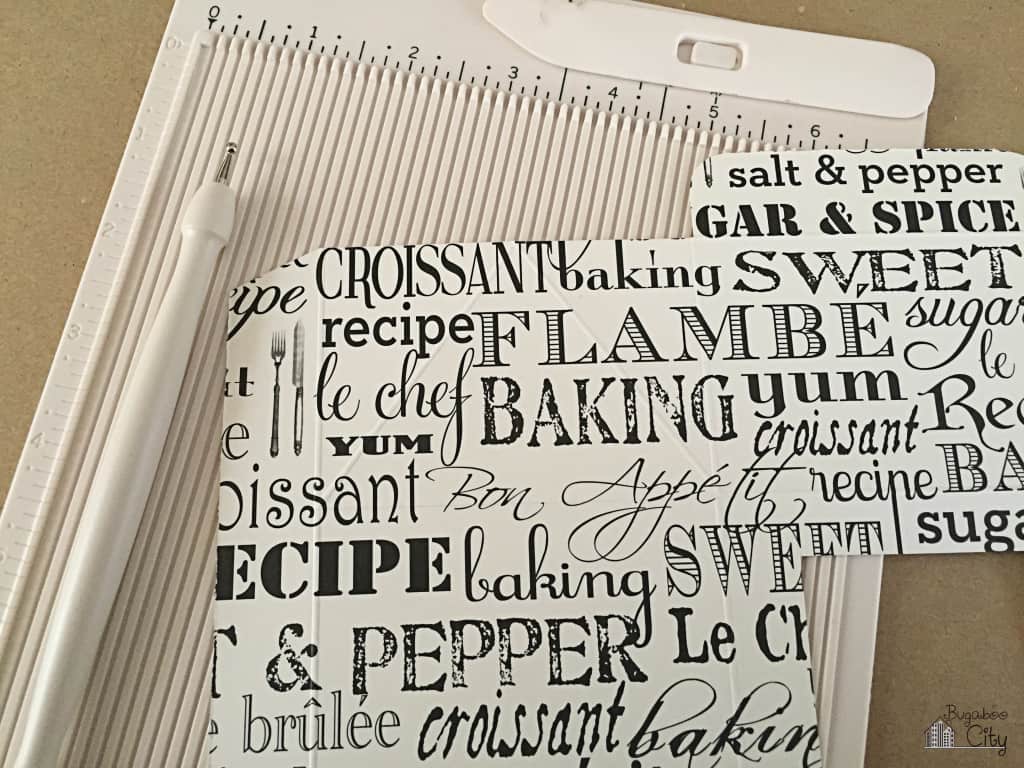 0 1 2 3 4 5 6
0 1 2 3 4 5
salt & pepper
GAR & SPICE
CROISSANT baking SWEET
cipe recipe FLAMBÉ sugar
le
le chef BAKING yum Rec
YUM croissant
oissant Bon Appétit recipe BA
ECIPE baking SWEET suga
T & PEPPER Le Ch
brûlée croissant bakin
Bugaboo
City